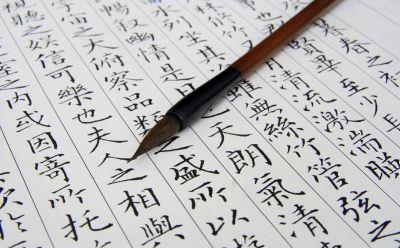 春之
賢畢至少
林脩竹清流激湍
列坐其無絲竹管弦之
暢敘幽情是日天朗氣清
之大俯察品類之盛所以
聽之娛信可樂也夫人之相與
之內或因寄所托
於